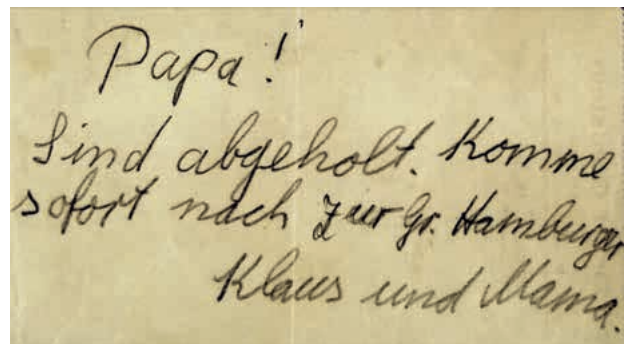 Papa!
Sind abgeholt. Komme
sofort nach zur Gr. Hamburger
Klaus und Mama.